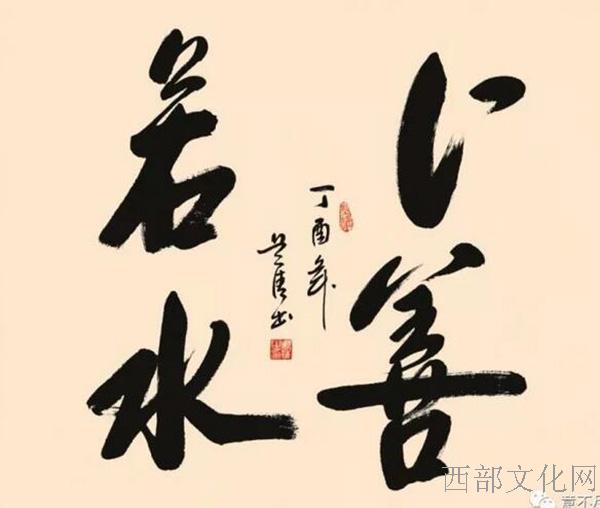 上善
若水
丁酉年
书
西部文化网